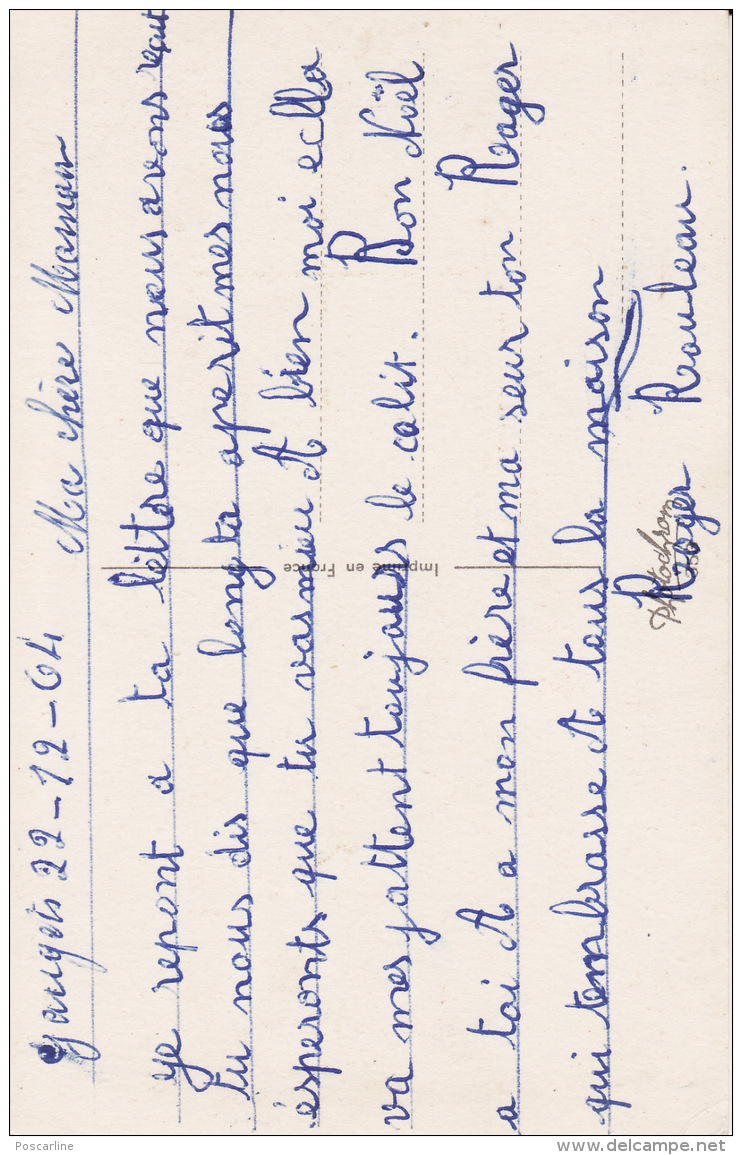 22-12-64
Ma chère Maman
ye repont a ta lettre que nous avons reçut
tu nous dis que long ta aperit mes nous
ésperonts que tu vas mieu et bien moi ec lla
va mes jattent toujours le calit. Bon Noël
a toi et a mon frère et ma seur ton Roger
qui tembrasse et tous la maison
Roger Rouleau.
Imprimé en France
Photochrom
Poscarline
delcampe.net